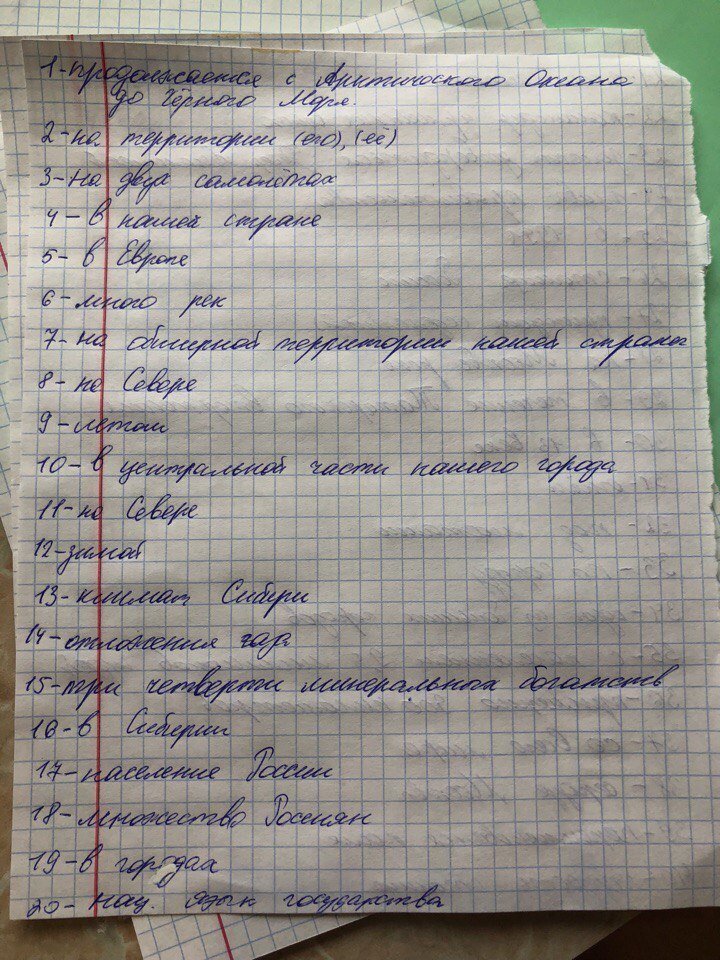 1-продолжается с Арктического Океана
до Чёрного Моря.
2-на территории (его), (её)
3-на двух самолётах
4-в нашей стране
5-в Европе
6-много рек
7-на обширной территории нашей страны
8-на Севере
9-летом
10-в центральной части нашего города
11-на Севере
12-зимой
13-климат Сибири
14-отложения газа
15-три четверти минеральных богатств
16-в Сиберии
17-население России
18-множество Россиян
19-в городах
20-нац. язык государства